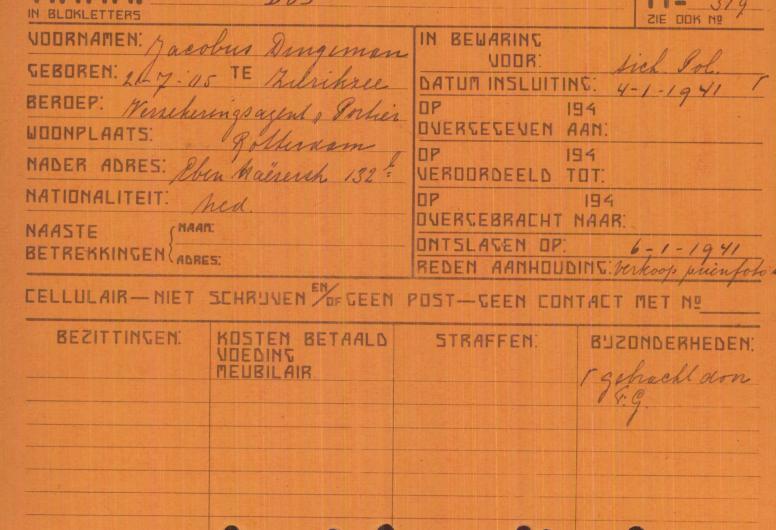 IN BLOKLETTERS
ZIE OOK Nº
VOORNAMEN: Jacobus Dingeman
GEBOREN: 21-7-'05 TE Zierikzee
BEROEP: Verzekeringsagent, Portier
WOONPLAATS: Rotterdam
NADER ADRES: Eben Haëzerstr. 132
NATIONALITEIT: Ned.
NAASTE BETREKKINGEN
NAAM:
ADRES:
IN BEWARING
VOOR: Sich. Pol.
DATUM INSLUITING: 4-1-1941
OP 194
OVERGEGEVEN AAN:
OP 194
VEROORDEELD TOT:
OP 194
OVERGEBRACHT NAAR:
ONTSLAGEN OP: 6-1-1941
REDEN AANHOUDING: Verkoop
CELLULAIR—NIET SCHRIJVEN EN/OF GEEN POST—GEEN CONTACT MET Nº
BEZITTINGEN:
KOSTEN BETAALD
VOEDING
MEUBILAIR
STRAFFEN:
BIJZONDERHEDEN:
gebracht door
F.G.